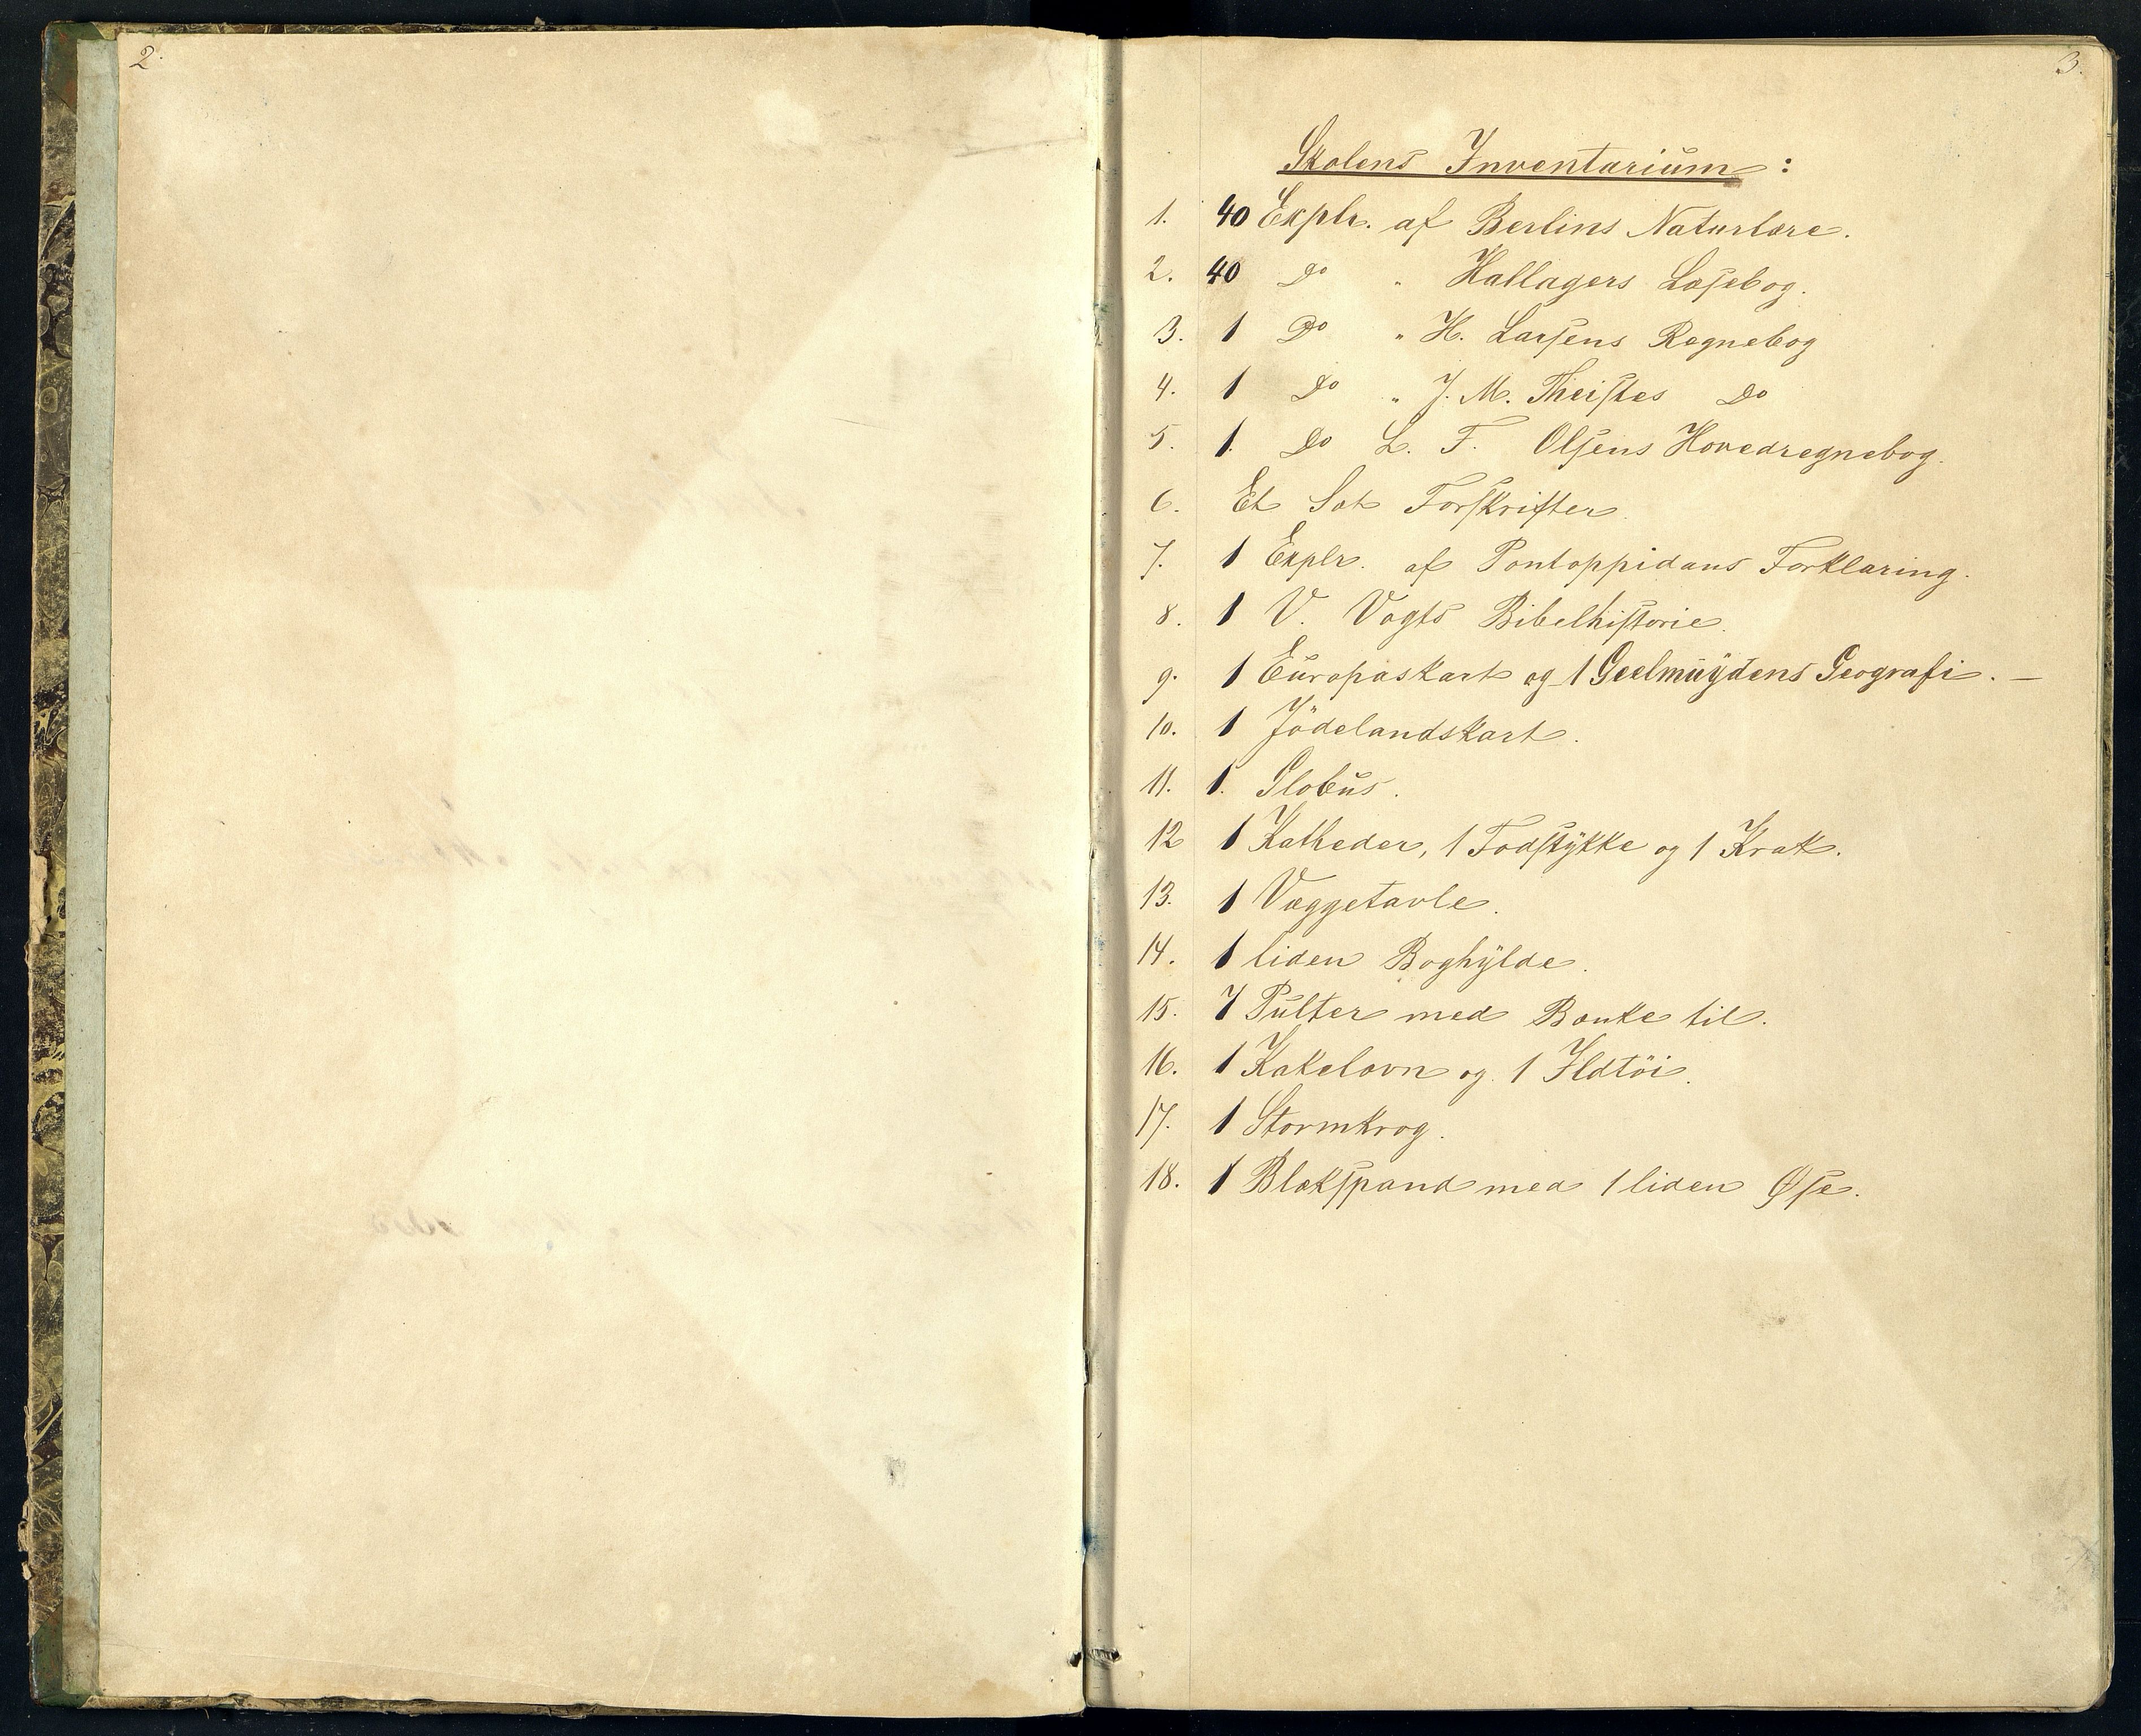 2.
3.
Skolens Inventarium:
1. 40 Explr. af Berlins Naturlære.
2. 40 Do " Hallagers Læsebog.
3. 1 Do " H. Larsens Regnebog
4. 1 Do " J. M. Theistes Do
5. 1. Do L. F. Olsens Hovedregnebog.
6. Et Sæt Forskrifter.
7. 1 Explr. af Pontoppidans Forklaring.
8. 1 V. Vogts Bibelhistorie.
9. 1 Europaskart og 1 Geelmuÿdens Geografi. —
10. 1 Jödelandskart.
11. 1. Globus.
12 1 Katheder, 1 Fodstÿkke og 1 Krak.
13. 1 Væggetavle.
14. 1 liden Boghÿlde.
15. 7 Pulter med Bænke til.
16. 1 Kakelovn og 1 Ildtöi.
17. 1 Stormkrog.
18. 1 Blekspand med 1 liden Øse.